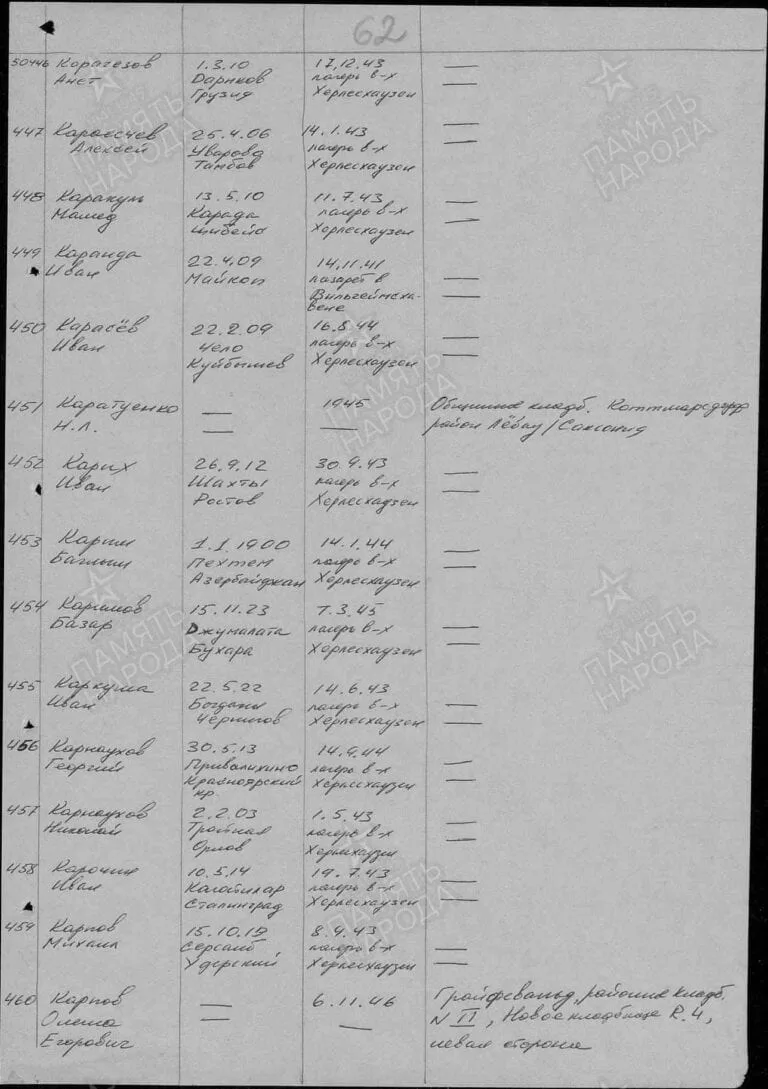 62
30446 Карагезов 1.3.10 17.12.43 —
Анет Дарнков лагерь в-х —
Грузия Херлесхаузен
447 25.4.06 14.1.43 —
Алексей Уварова лагерь в-х —
Тамбов Херлесхаузен
448 Каракуль 13.5.10 11.7.43 —
Мамед Карада лагерь в-х —
Херлесхаузен
449 Каранда 22.4.09 14.11.41
Иван Майкоп лазарет в —
Вильгеймсха- —
вене
450 Карасёв 22.2.09 16.8.44
Иван Чело лагерь в-х —
Куйбышев Херлесхаузен —
451 Каратуенко — 1945 Общинное кладб. Коттмарсдорф
Н.Л. — — район Лёбау/Саксония
452 Карих 26.9.12 30.9.43 —
Иван Шахты лагерь в-х —
Ростов Херлесхаузен
453 Карим 1.1.1900 14.1.44 —
Баглыш Пехтем лагерь в-х —
Азербайджан Херлесхаузен
454 Каримов 15.11.23 7.3.45
Базар Джумалата лагерь в-х —
Бухара Херлесхаузен —
455 Каркуша 22.5.22 14.6.43
Иван Богданы лагерь в-х —
Чернигов Херлесхаузен —
456 Карнаухов 30.5.13 14.9.44
Георгий Привалихино лагерь в-х —
Красноярский Херлесхаузен —
кр.
457 Карнаухов 2.2.03 1.5.43
Николай Тройная лагерь в-х —
Орлов Херлесхаузен —
458 Карочкин 10.5.14 19.7.43
Иван лагерь в-х —
Сталинград Херлесхаузен —
459 Карпов 15.10.19 8.4.43
Михаил лагерь в-х —
Удерский Херлесхаузен —
460 Карпов — 6.11.46 Грайфсвальд, районное кладб.
Олема — — N II, Новое кладбище R.4,
Егорович левая сторона
ПАМЯТЬ
НАРОДА